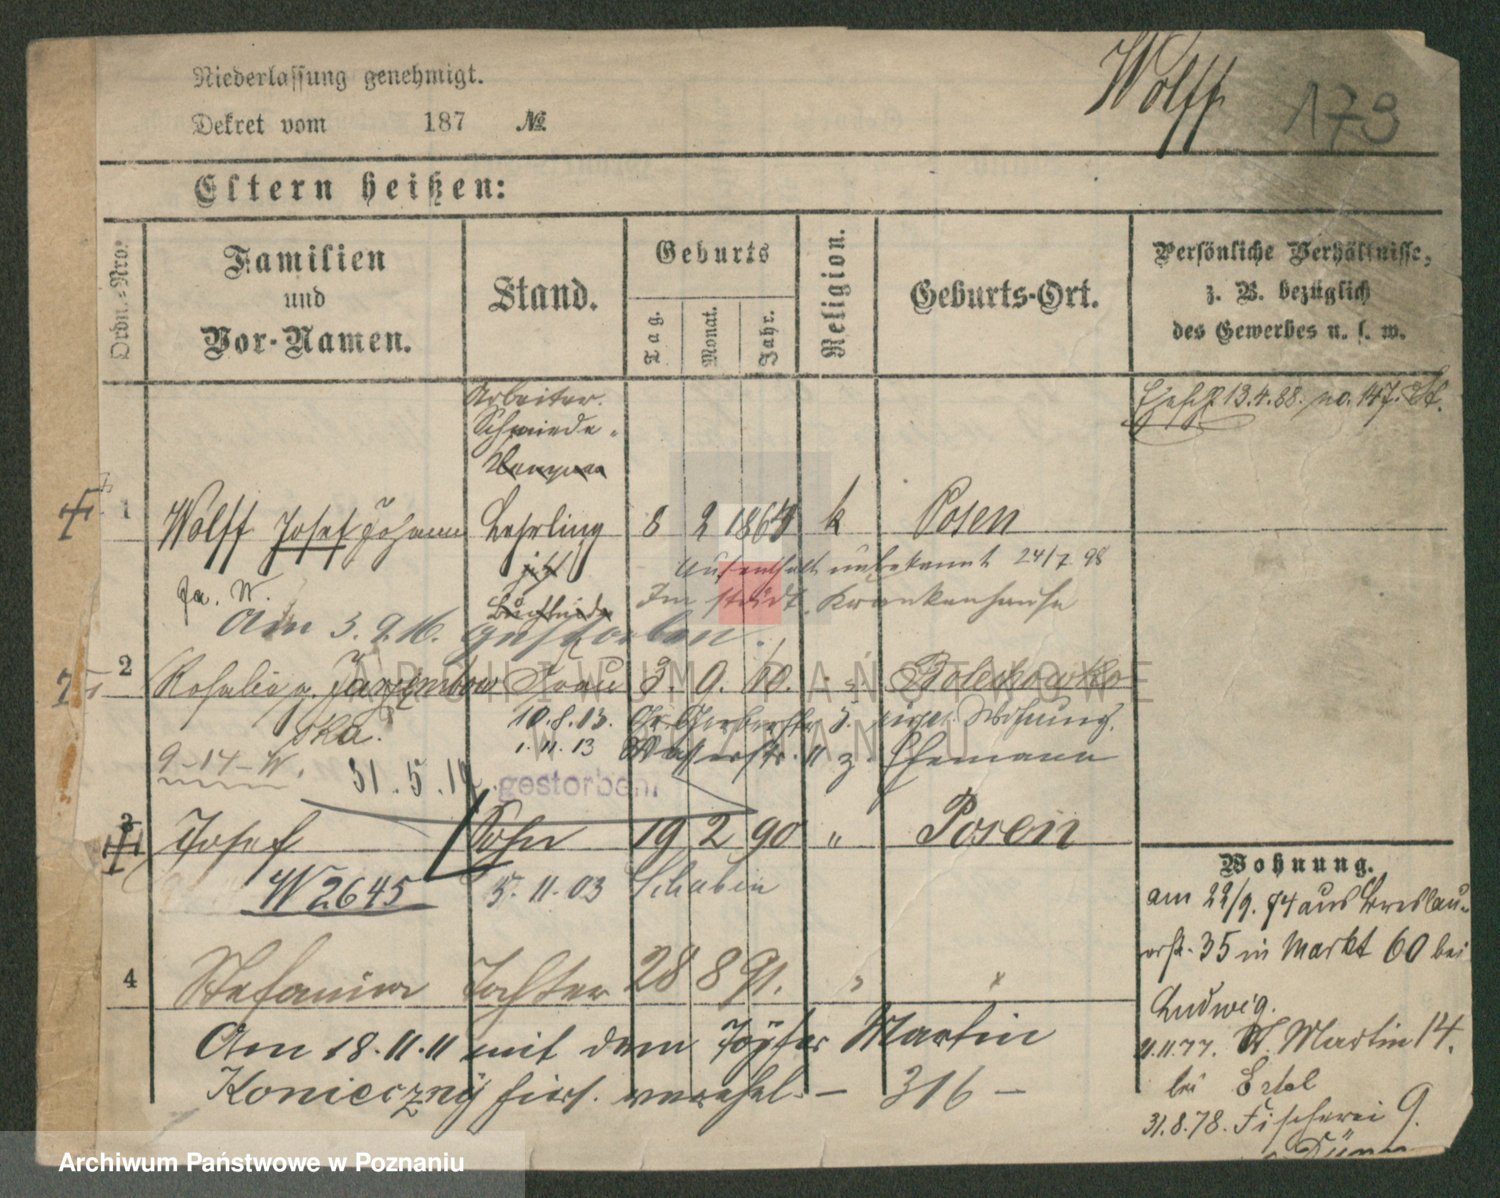 Niederlassung genehmigt.
Wolff 173
Dekret vom 187 №
Eltern heißen:
Ordn.-Nro.
Familien
und
Vor-Namen.
Stand.
Geburts
Tag.
Monat.
Jahr.
Religion.
Geburts-Ort.
Persönliche Verhältnisse,
z. B. bezüglich
des Gewerbes u. s. w.
Arbeiter.
Schmiede
13.4.88. no. 147.
1 Wolff Josef Johann Lehrling 8 2 186 k Posen
Aufenthalt unbekannt 24/7 98
Im städt. Krankenhause
Am 3.9.16. gestorben.
2 Rosalie g. Jarzembow Frau 3. 9. 60.
ska.
10.8.13. Gr. Gerberstr
1.11.13 Wasserstr. 11 z. Ehemann
9-14-W.
31.5.19 gestorben!
3 Josef Sohn 19 2 90 " Posen
W 2645 5.11.03 Schubin
Wohnung.
am 22/9. 74 aus Breslau-
erstr. 35 in Markt 60 bei
Ludwig.
4 Stefania Tochter 28 8 91. " "
Am 18.11.11 mit dem Töpfer Martin
Konieczny hier. verehel. — 316 —
11.11.77. St. Martin 14.
bei Ertel
31.8.78. Fischerei 9.
ARCHIWUM PAŃSTWOWE
W POZNANIU
Archiwum Państwowe w Poznaniu